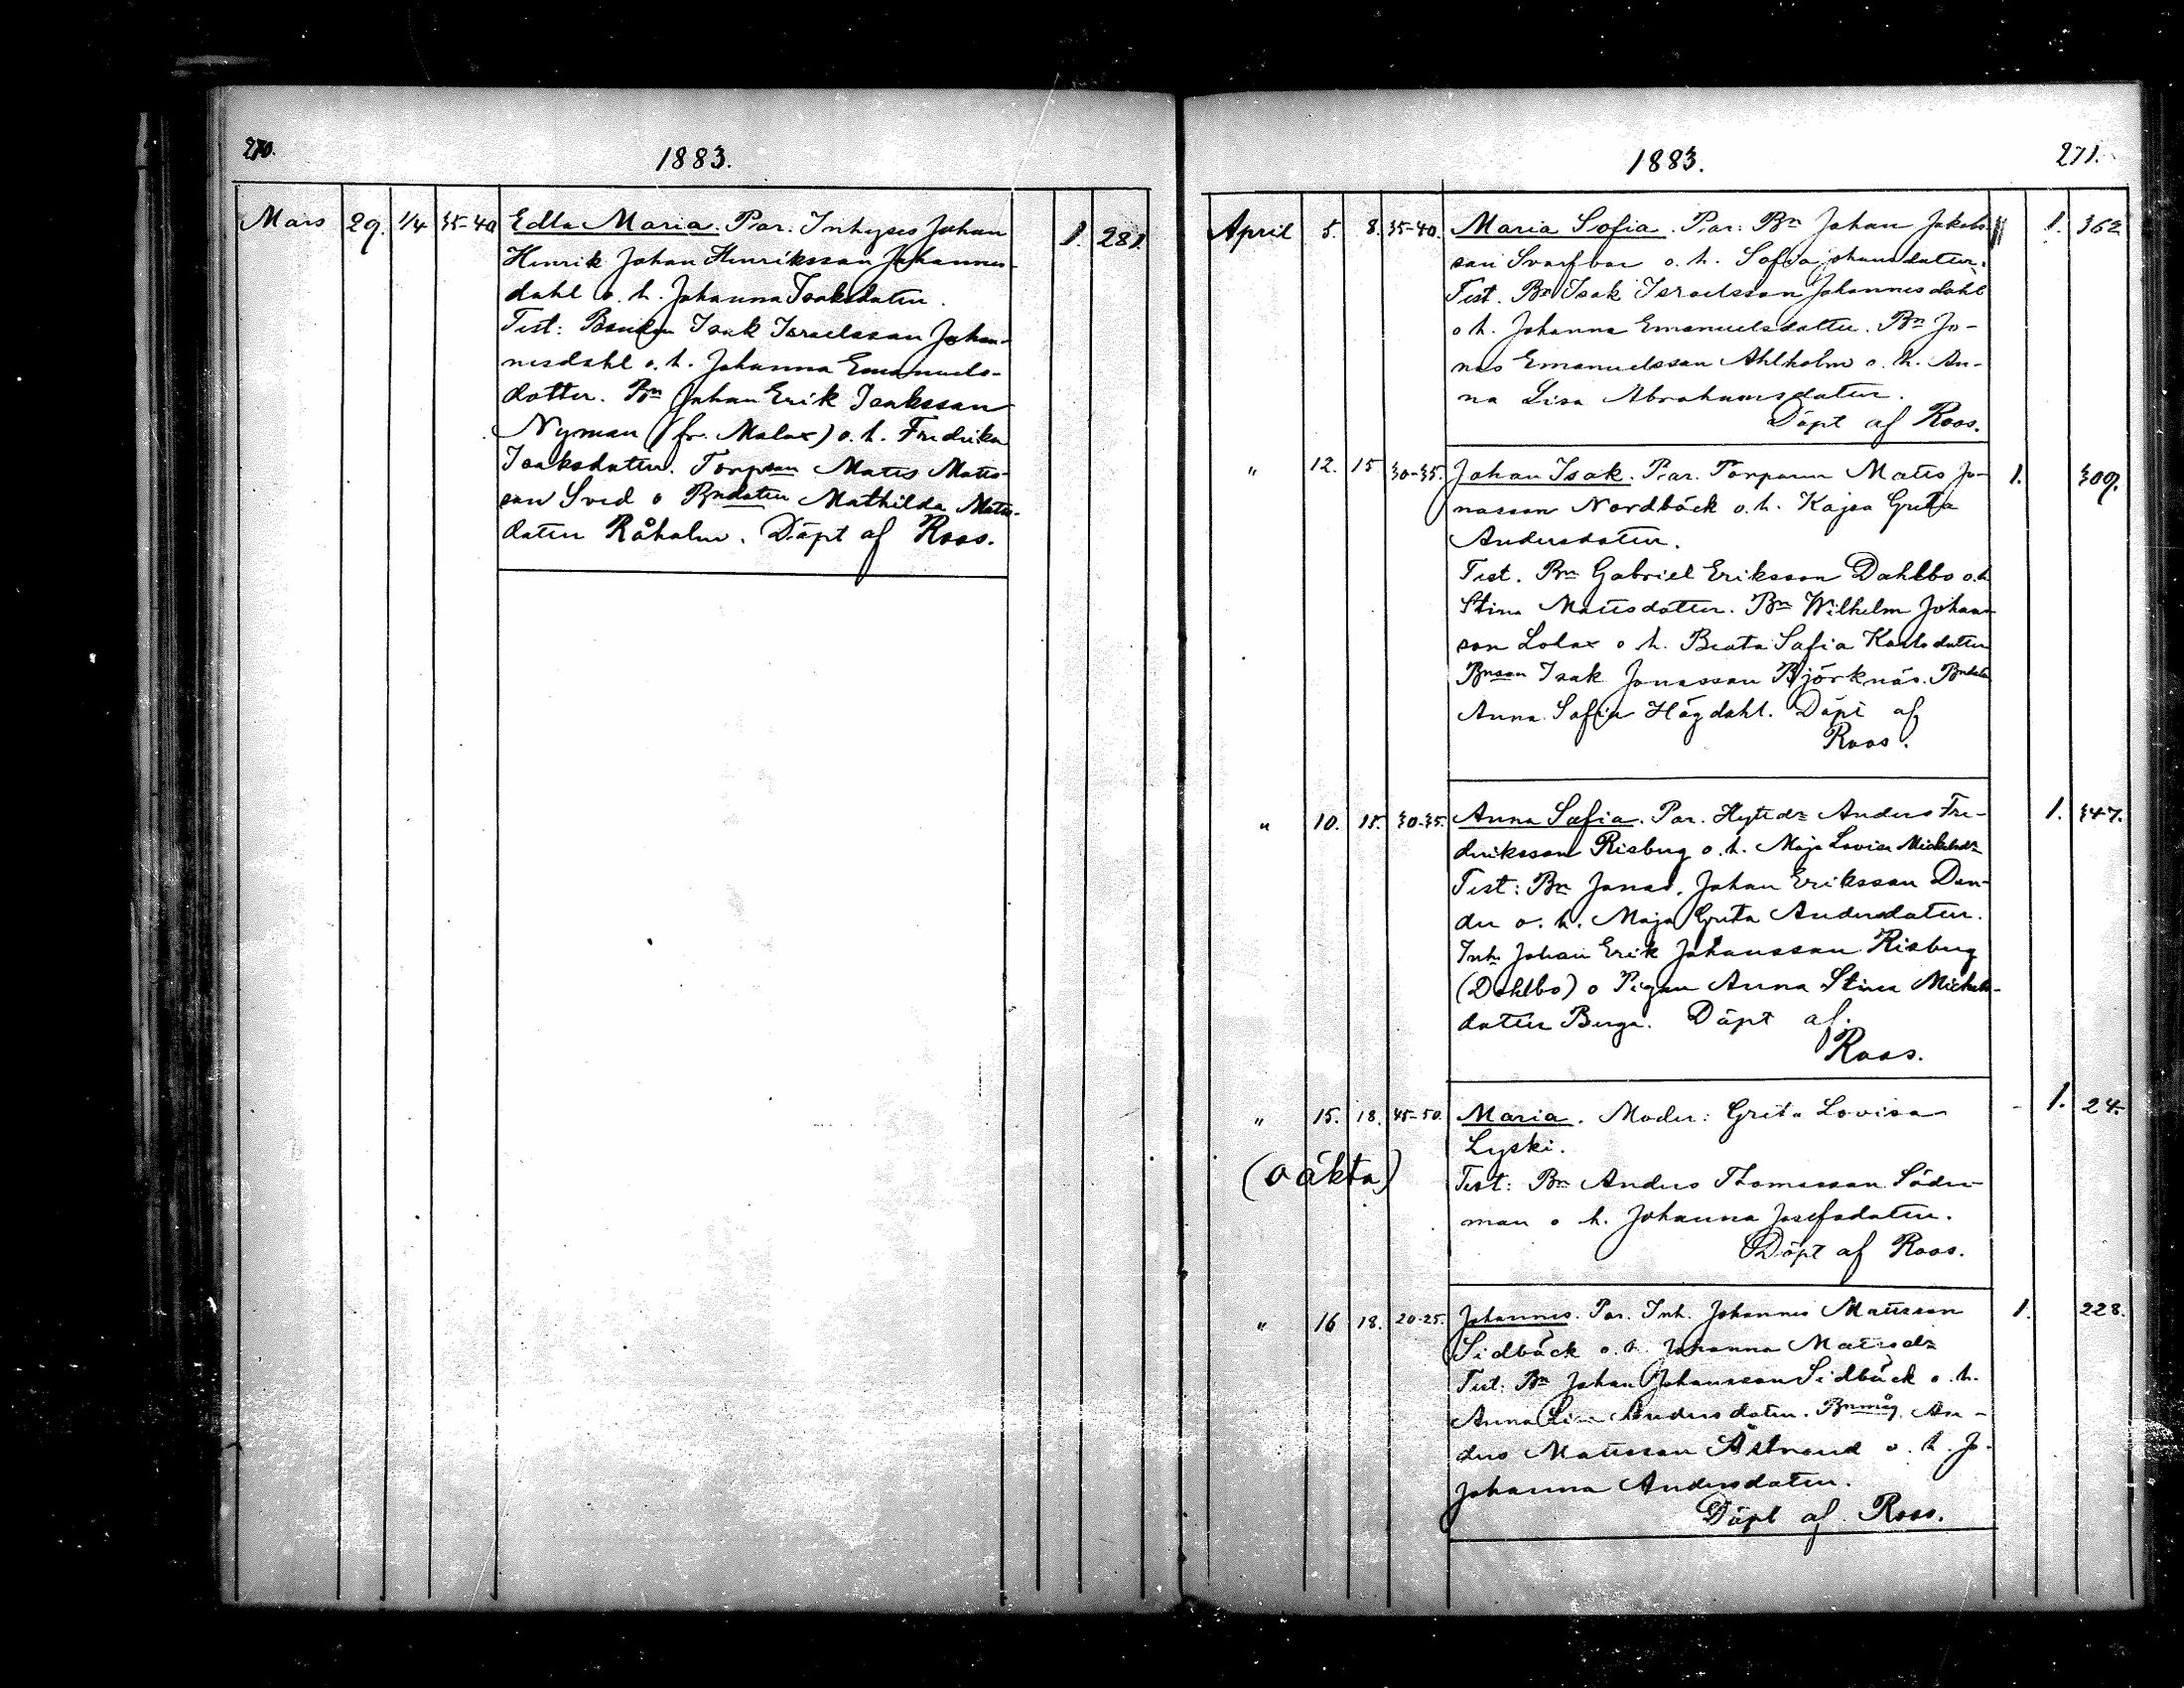 270.
1883.
Mars 29. 1/4 35-40 Edla Maria. Par. Inhyses Johan 1. 281.
Henrik Johan Henriksson Johannes-
dahl o. h. Johanna Isaksdatter.
Test: Bonden Isak Israelsson Johan-
nesdahl o. h. Johanna Emanuels-
dotter. Bn Johan Erik Isaksson
Nyman (fr. Malax) o. h. Fredrika
Isaksdatter. Torpson Matts Matts-
son Svед o Bndatter Mathilda Matts-
datter Råholm. Döpt af Roos.
1883.
271.
April 5. 8. 35-40. Maria Sofia. Par: Bn Johan Jakobs- 1. 362
son Svarfvar o. h. Sofia Johansdatter.
Test. Bn Isak Israelsson Johannesdahl
o h. Johanna Emanuelsdotter. Bn Jo-
nas Emanuelsson Ahlholm o. h. An-
na Lisa Abrahamsdatter.
Döpt af Roos.
" 12. 15 30-35. Johan Isak. Par. Torparen Matts Jo- 1. 309.
nasson Nordbäck o. h. Kajsa Greta
Andersdatter.
Test. Bn Gabriel Eriksson Dahlbo o. h.
Stina Mattsdotter. Bn Wilhelm Johans-
son Lolax o h. Beata Sofia Karlsdatter
Bnson Isak Jonasson Björknäs. Bndatter
Anna Sofia Högdahl. Döpt af
Roos.
" 10. 15. 30-35. Anna Sofia. Par. Hyttedr Anders Fre- 1. 347.
driksson Risberg o. h. Maja Lovisa Mickelsdr
Test: Bn Jonas, Johan Eriksson Den-
der o. h. Maja Greta Andersdatter.
Inh. Johan Erik Johansson Risberg
(Dahlbo) o Pigan Anna Stina Mickels-
datter Berga. Döpt af
Roos.
" 15. 18. 45-50. Maria. Moder: Greta Lovisa 1. 24.
Lyski.
(oäkta)
Test: Bn Anders Thomasson Söder-
man o h. Johanna Josefsdatter.
Döpt af Roos.
" 16 18. 20-25. Johannes. Par. Inh. Johannes Mattsson 1. 228.
Sidbäck o. h. Johanna Mattsdr
Test: Bn Johan Johansson Sidbäck o. h.
Anna Lisa Andersdatter. Bnmåg. An-
ders Mattsson Åstrand o. h. Jo-
Johanna Andersdatter.
Döpt af Roos.